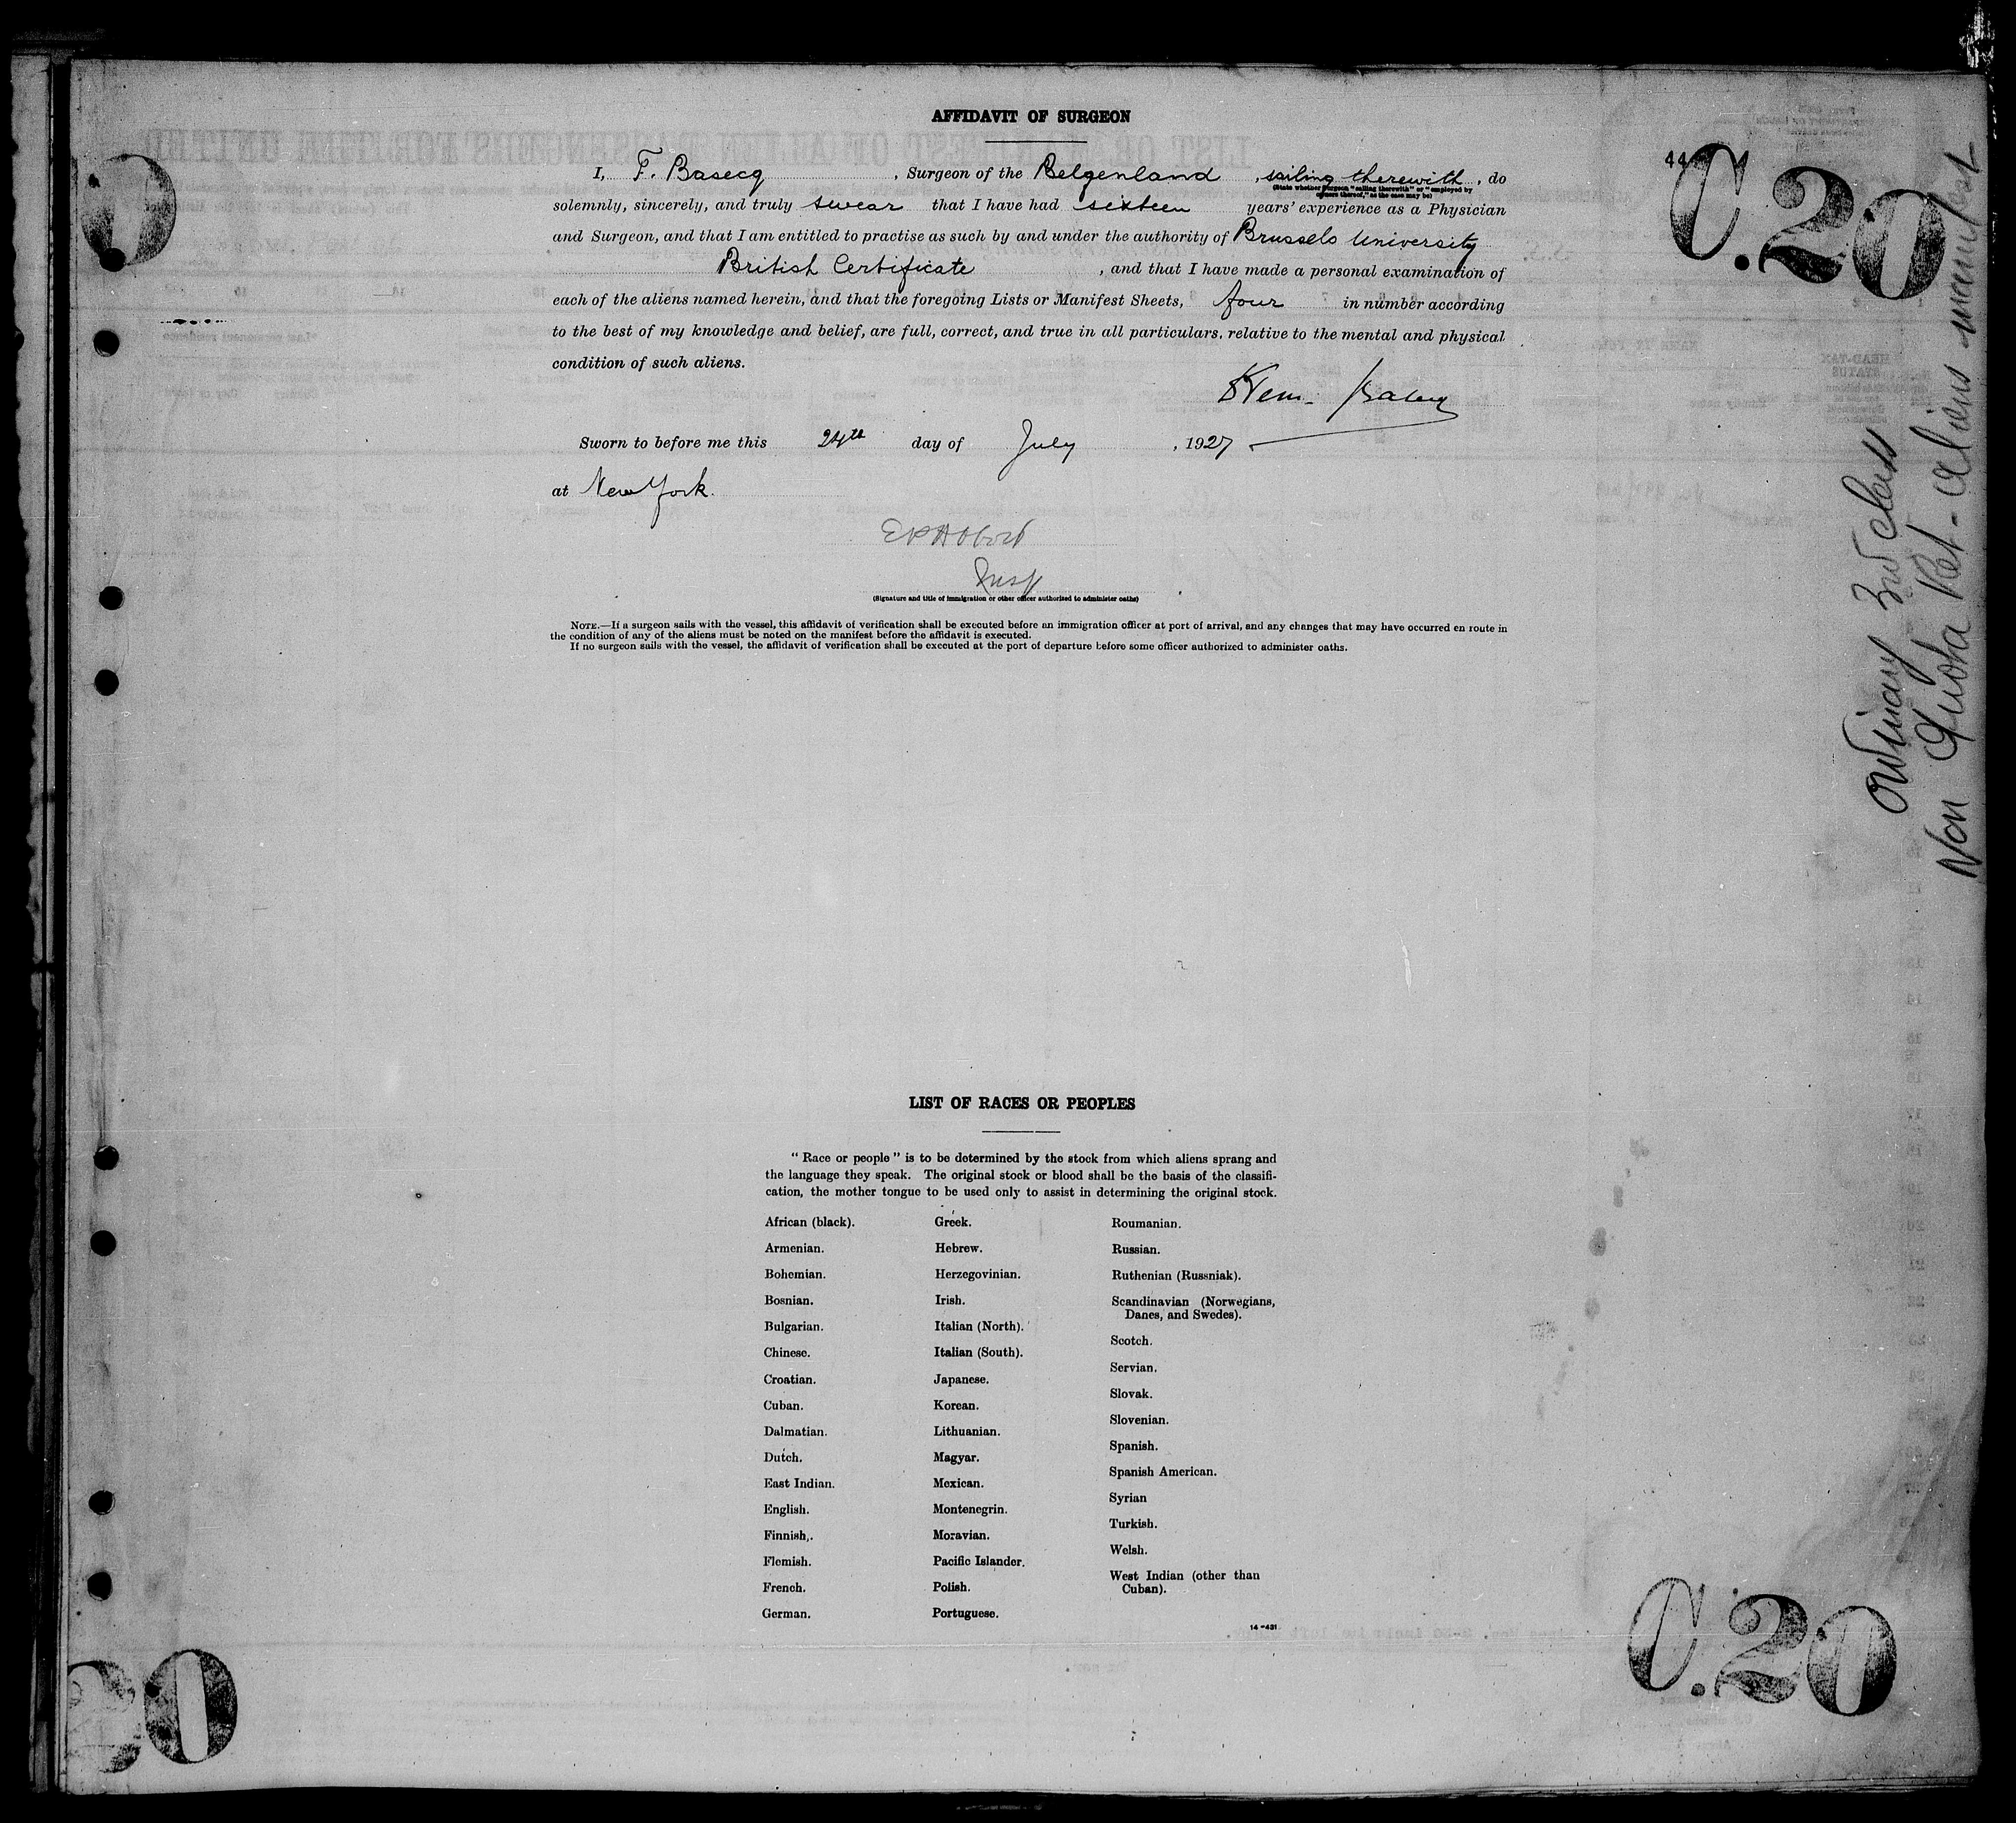 AFFIDAVIT OF SURGEON
44
C.20
I, F. Basecq, Surgeon of the Belgenland, sailing therewith, do
(State whether Surgeon "sailing therewith" or "employed by
owners thereof," as the case may be)
solemnly, sincerely, and truly swear that I have had sixteen years' experience as a Physician
and Surgeon, and that I am entitled to practise as such by and under the authority of Brussels University
British Certificate, and that I have made a personal examination of
each of the aliens named herein, and that the foregoing Lists or Manifest Sheets, four in number according
to the best of my knowledge and belief, are full, correct, and true in all particulars, relative to the mental and physical
condition of such aliens.
Sworn to before me this 24th day of July, 1927
at New York.
Insp
(Signature and title of immigration or other officer authorized to administer oaths)
NOTE.—If a surgeon sails with the vessel, this affidavit of verification shall be executed before an immigration officer at port of arrival, and any changes that may have occurred en route in
the condition of any of the aliens must be noted on the manifest before the affidavit is executed.
If no surgeon sails with the vessel, the affidavit of verification shall be executed at the port of departure before some officer authorized to administer oaths.
Ordinary 3rd class
Non Quota Ret- aliens manifest
LIST OF RACES OR PEOPLES
"Race or people" is to be determined by the stock from which aliens sprang and
the language they speak. The original stock or blood shall be the basis of the classifi-
cation, the mother tongue to be used only to assist in determining the original stock.
African (black).
Armenian.
Bohemian.
Bosnian.
Bulgarian.
Chinese.
Croatian.
Cuban.
Dalmatian.
Dutch.
East Indian.
English.
Finnish.
Flemish.
French.
German.
Greek.
Hebrew.
Herzegovinian.
Irish.
Italian (North).
Italian (South).
Japanese.
Korean.
Lithuanian.
Magyar.
Mexican.
Montenegrin.
Moravian.
Pacific Islander.
Polish.
Portuguese.
Roumanian.
Russian.
Ruthenian (Russniak).
Scandinavian (Norwegians,
Danes, and Swedes).
Scotch.
Servian.
Slovak.
Slovenian.
Spanish.
Spanish American.
Syrian
Turkish.
Welsh.
West Indian (other than
Cuban).
14-431
C.20